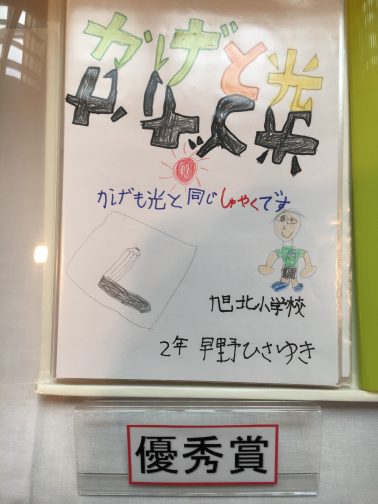 かげと光
かげも光と同じしゃくです
旭北小学校
2年 早野ひさゆき
優秀賞